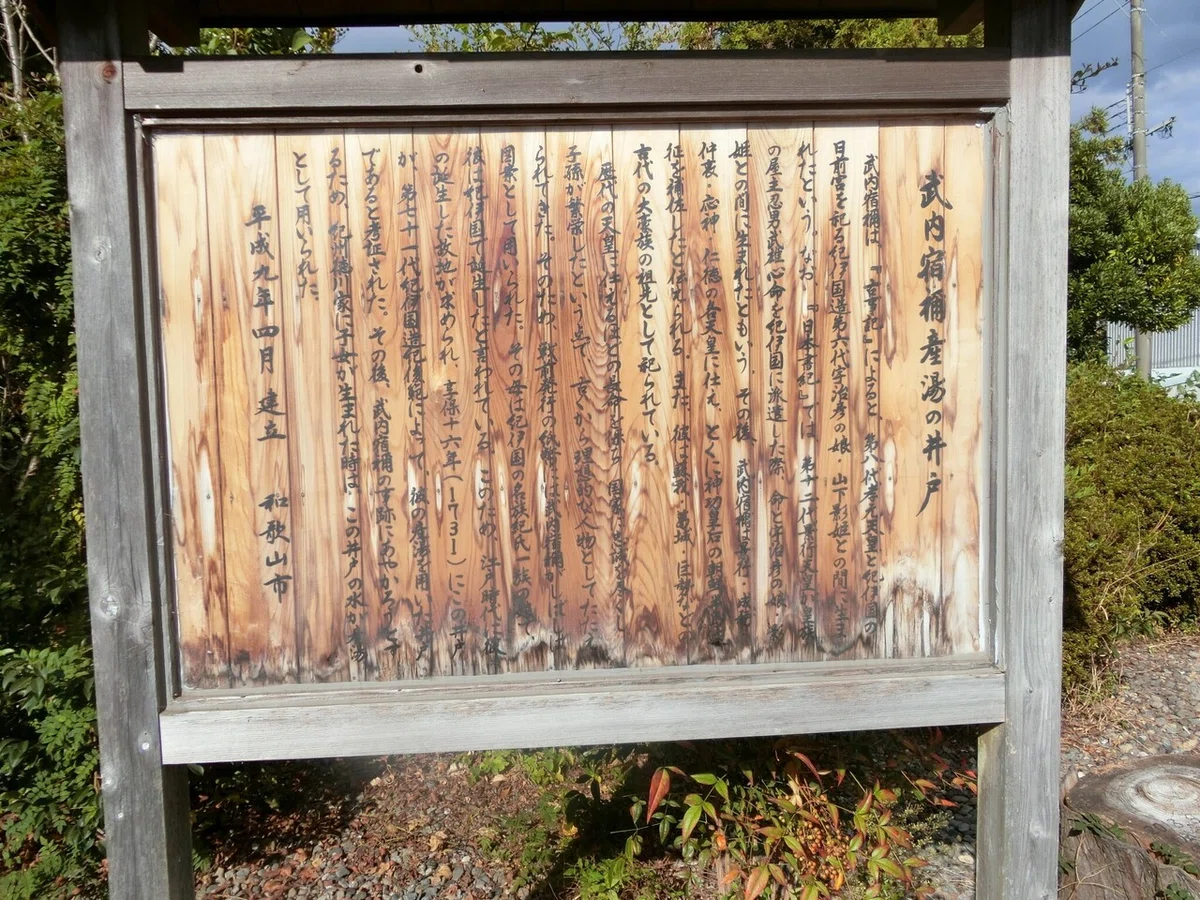 武内宿禰産湯の井戸
武内宿禰は、『古事記』によると、第八代孝元天皇と紀伊国の
日前宮を祀る紀伊国造第六代宇治彦の娘・山下影姫との間に生ま
れたという。なお、『日本書紀』では、第十二代景行天皇が皇孫
の屋主忍男武雄心命を紀伊国に派遣した際、命と宇治彦の娘・影
姫との間に生まれたともいう。その後、武内宿禰は景行・成務・
仲哀・応神・仁徳の各天皇に仕え、とくに神功皇后の朝鮮
征を補佐したと伝えられる。また、彼は蘇我・葛城・巨勢などの
古代の大豪族の祖先として祀られている。
歴代の天皇に仕えるほどの長命を保ち、国家に忠誠を尽くし
子孫が繁栄したという点で、古くから理想的な人物としてたたえ
られてきた。そのため、戦前発行の紙幣には武内宿禰がしばしば
図案として用いられた。その母は紀伊国の名族紀氏一族の
後に紀伊国で誕生したと言われている。このため、江戸時代に彼
の誕生した故地が求められ、享保十六年(1731)にこの井戸
が、第七十一代紀伊国造紀俊範によって、彼の産湯を用いた井戸
であると考証された。その後、武内宿禰の事跡にあやかろうと
るため、紀州徳川家に子女が生まれた時は、この井戸の水が産湯
として用いられた。
平成九年四月 建立 和歌山市